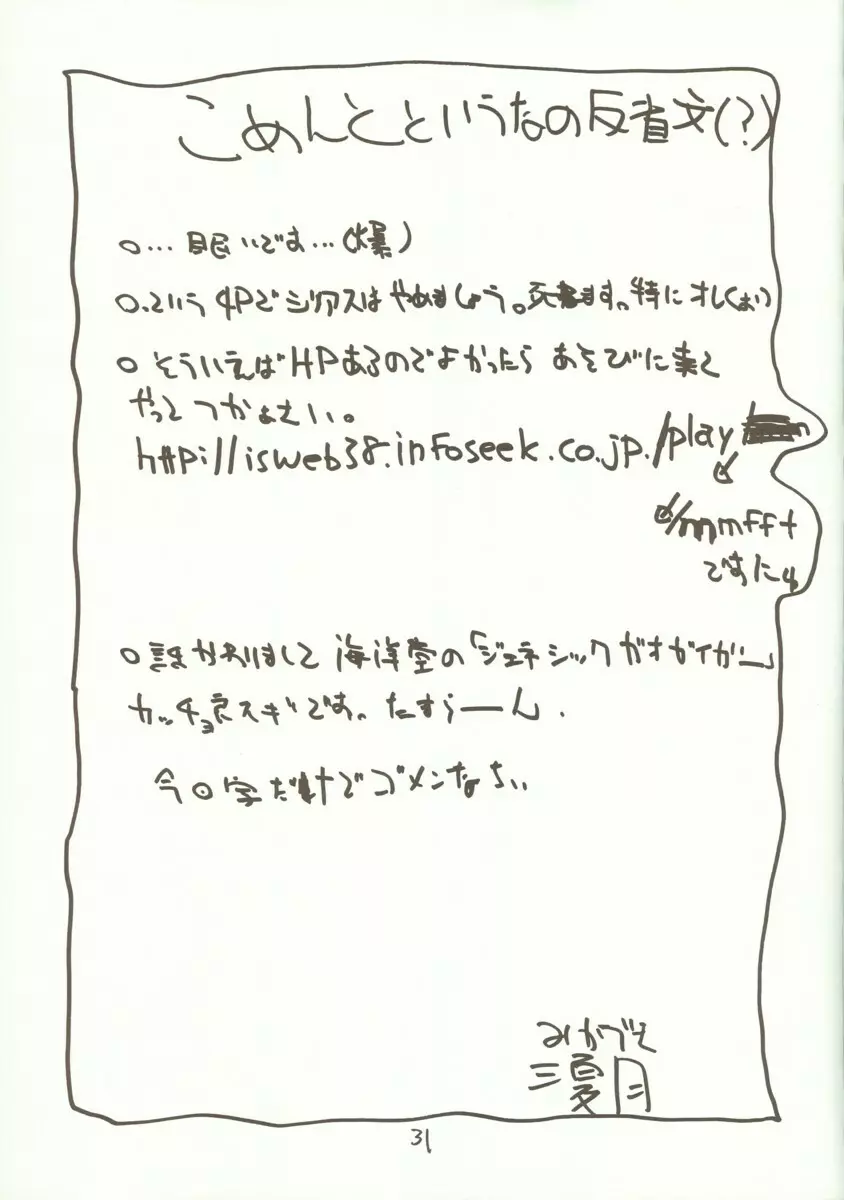 こめんとというなの反省文(?)
○…眠いです…(爆)
○.という4Pでジアスはやめましょう。死ねます。特にオレ(おい)
○そういえばHPあるのでよかったらあそびに来て
やってつかぁさい。
http://isweb38.infoseek.co.jp./play
/mmfft
ですにゅ
○誰かおりまして 海洋堂の「ジェネシックガオガイガー」
カッチョ良スギです。たすらーん.
今回字だけでゴメンなさい
みかづき
三夏月
31